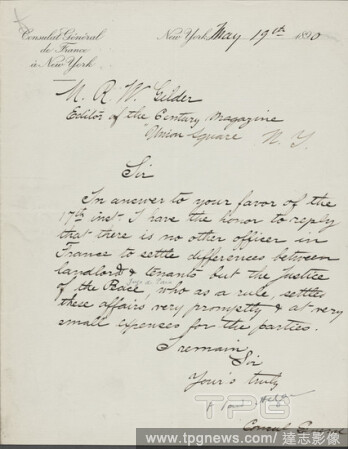 Consulat Général
de France
à New York
New York, May 19th 1890
M. R. W. Gilder
Editor of the Century Magazine
Union Square N. Y.
Sir
In answer to your favor of the
17th inst. I have the honor to reply
that there is no other officer in
France to settle differences between
landlords & tenants but the Justice
of the Peace, who as a rule, settles
these affairs very promptly & at very
small expenses for the parties.
I remain
Sir
Your's truly
Consul
TPG
www.tpgnews.com | 達志影像